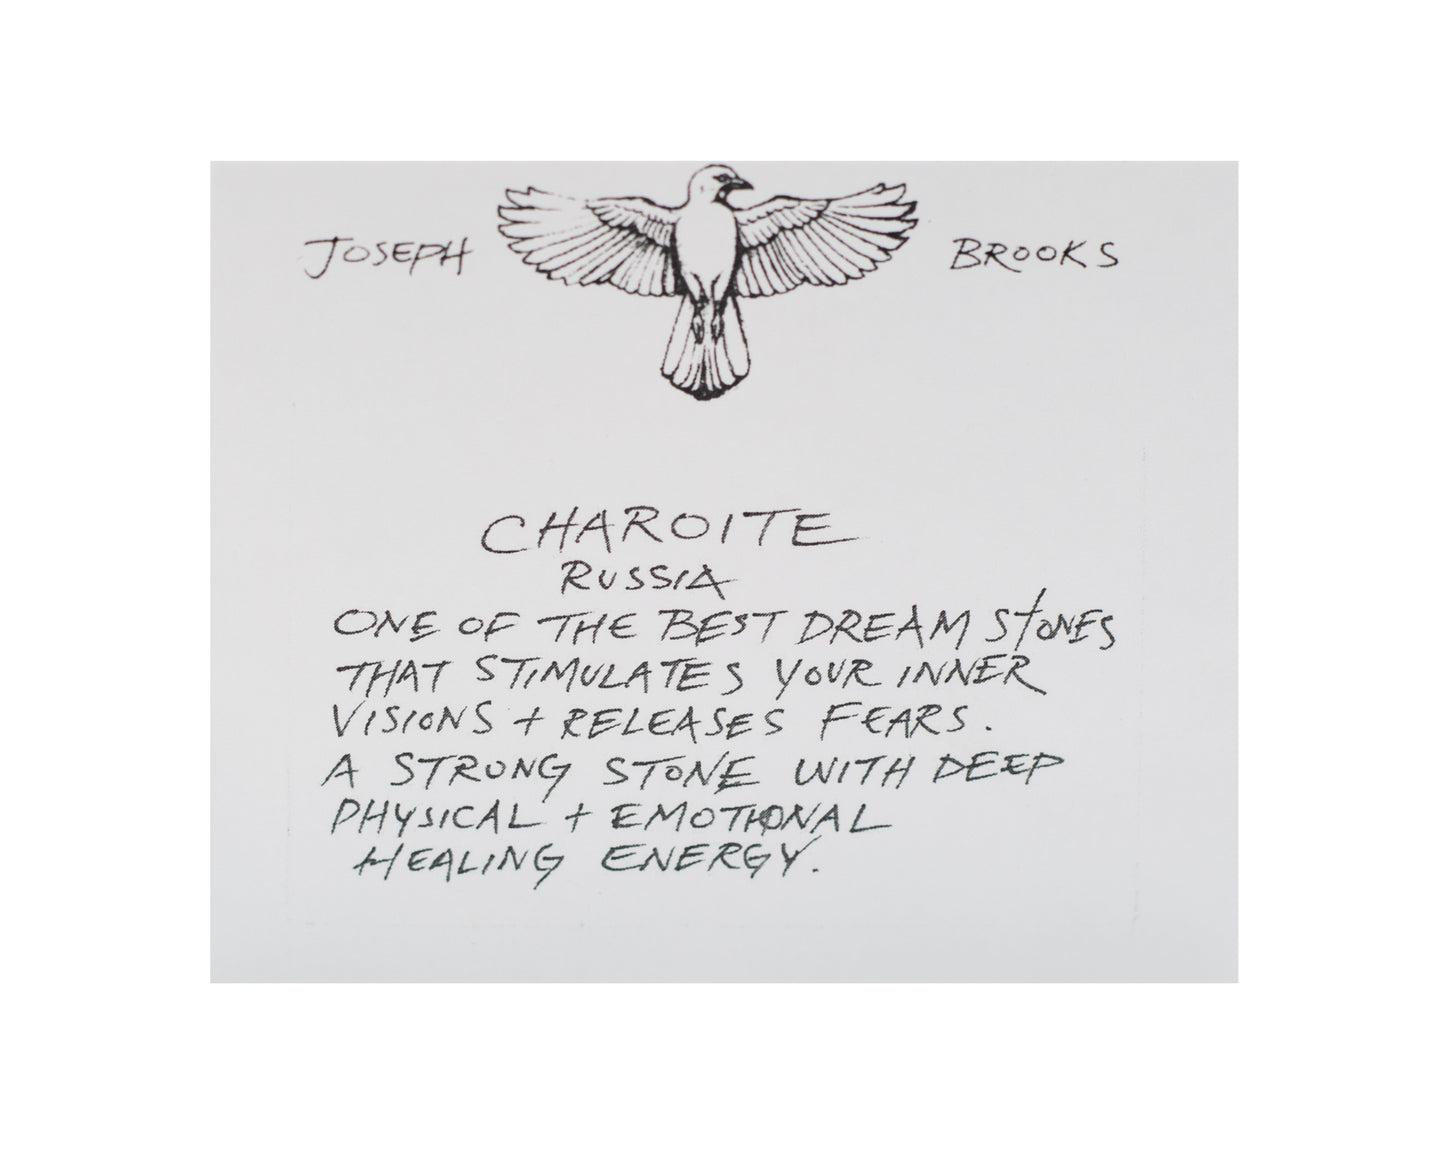 JOSEPH BROOKS
CHAROITE
RUSSIA
ONE OF THE BEST DREAM STONES
THAT STIMULATES YOUR INNER
VISIONS + RELEASES FEARS.
A STRONG STONE WITH DEEP
PHYSICAL + EMOTIONAL
HEALING ENERGY.